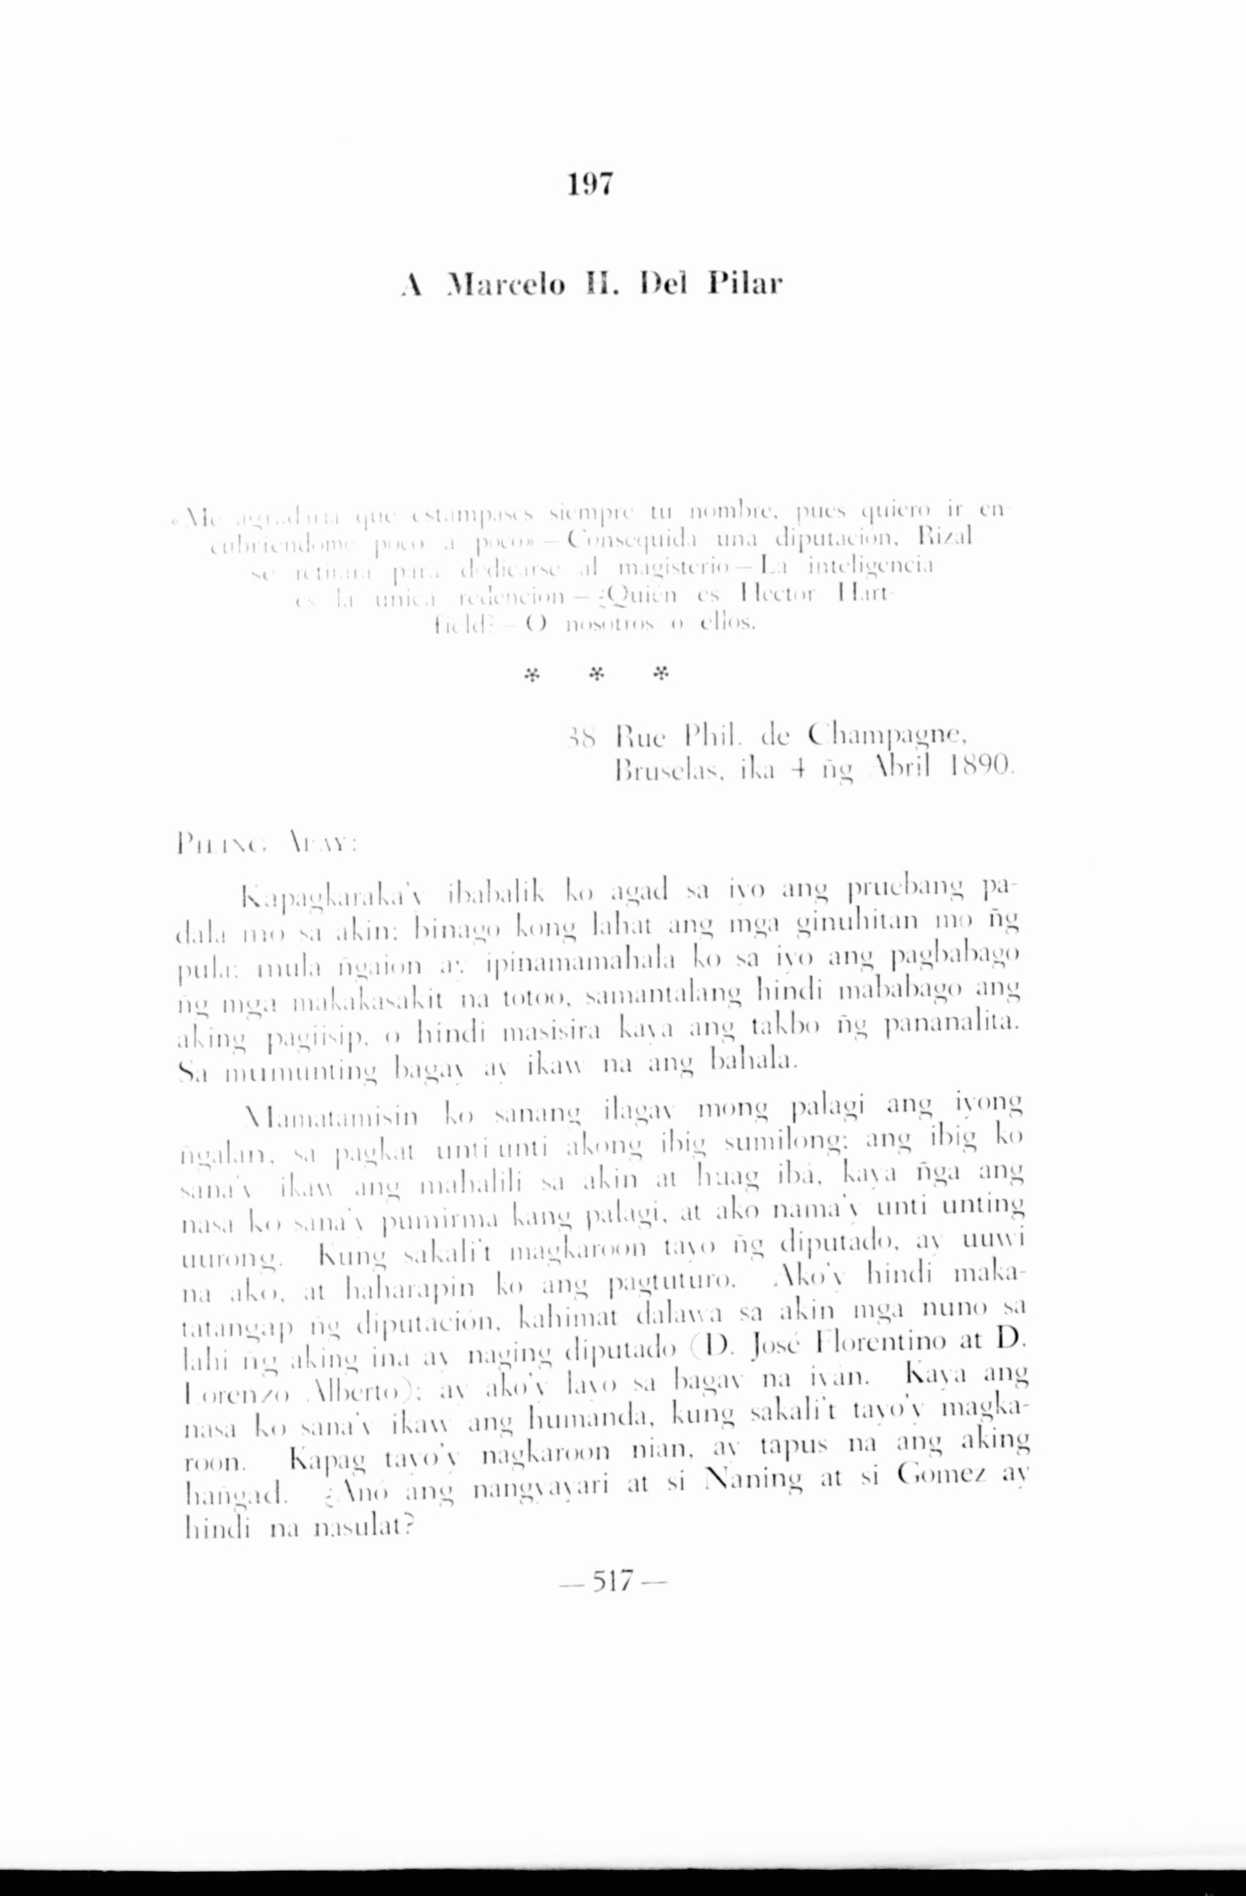 197
A Marcelo H. Del Pilar
«Me agradaría que estampases siempre tu nombre, pues quiero ir en-
cubriendome poco a poco» — Conseguida una diputación, Rizal
se retirara para dedicarse al magisterio — La inteligencia
es la unica redencion — ¿Quién es Hector Hart-
field? — O nosotros o ellos.
* * *
38 Rue Phil. de Champagne,
Bruselas, ika 4 n̄g Abril 1890.
PILING APAY:
Kapagkaraka'y ibabalik ko agad sa iyo ang pruebang pa-
dala mo sa akin; binago kong lahat ang mga ginuhitan mo n̄g
pula; mula n̄gaion ay ipinamamahala ko sa iyo ang pagbabago
n̄g mga makakasakit na totoo, samantalang hindi mababago ang
aking pagiisip, o hindi masisira kaya ang takbo n̄g pananalita.
Sa mumunting bagay ay ikaw na ang bahala.
Mamatamisin ko sanang ilagay mong palagi ang iyong
n̄galan, sa pagkat unti unti akong ibig sumilong; ang ibig ko
sana'y ikaw ang mahalili sa akin at huag ibá, kaya n̄ga ang
nasa ko sana'y pumirma kang palagi, at ako nama'y unti unting
uurong. Kung sakali't magkaroon tayo n̄g diputado, ay uuwi
na ako, at haharapin ko ang pagtuturo. Ako'y hindi maka-
tatangap n̄g diputación, kahimat dalawa sa akin mga nuno sa
lahi n̄g aking ina ay naging diputado (D. José Florentino at D.
Lorenzo Alberto); ay ako'y layo sa bagay na iyán. Kaya ang
nasa ko sana'y ikaw ang humanda, kung sakali't tayo'y magka-
roon. Kapag tayo'y nagkaroon nian, ay tapus na ang aking
han̄gad. ¿Anó ang nangyayari at si Naning at si Gomez ay
hindi na nasulat?
— 517 —